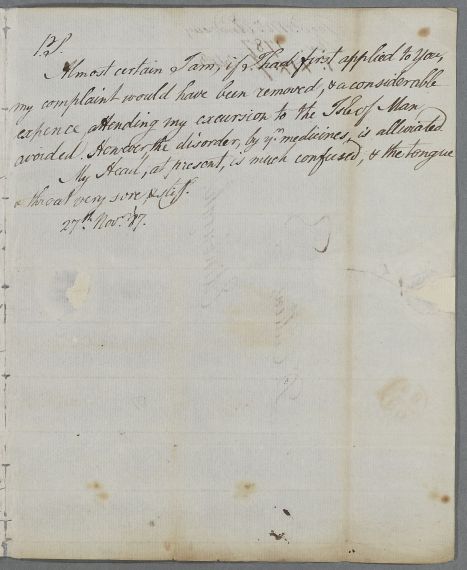 P.S.
Almost certain I am, if I had first applied to You,
my complaint would have been removed, & a considerable
expence attending my excursion to the Isle of Man,
avoided. However, the disorder, by yr. medicines, is alleviated
My Head, at present, is much confused, & the tongue
& throat very sore, & stiff.
27th. Novr. 87.